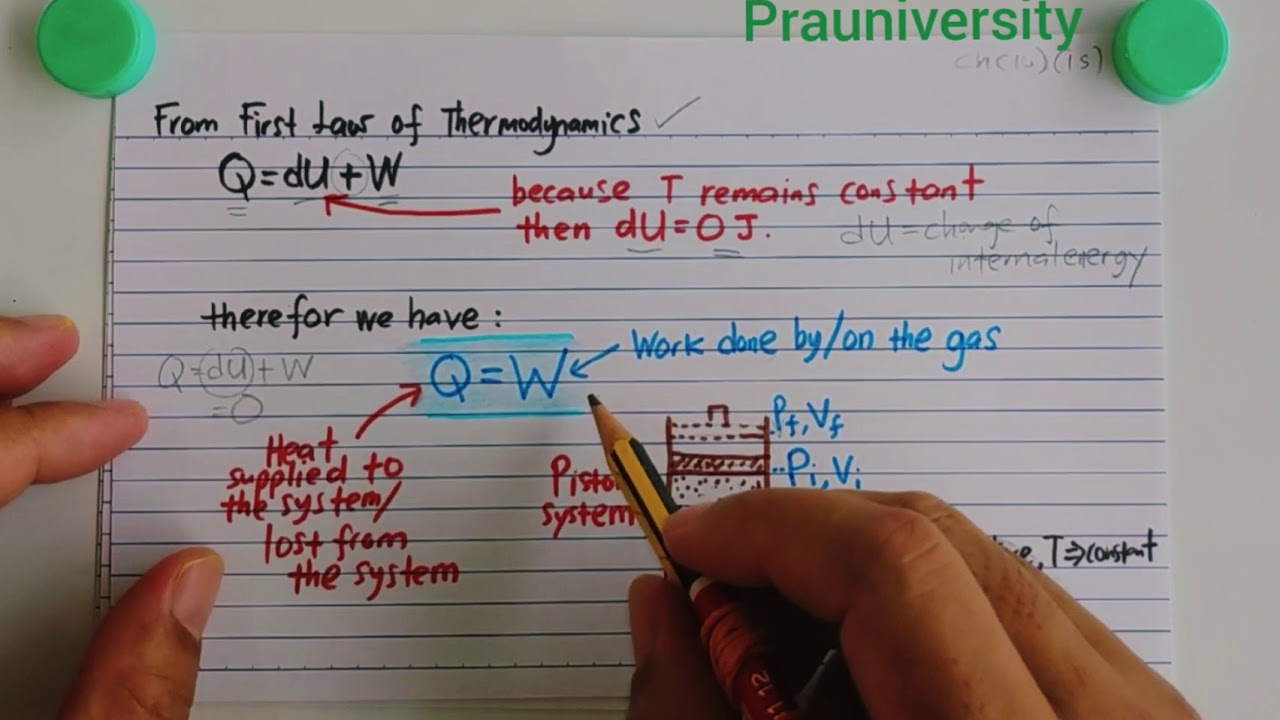 Prauniversity
ch(10)(1s)
From First Law of Thermodynamics ✓
Q=dU+W
because T remains constant
then dU=0J.
dU=change of
internal energy
therefor we have:
Work done by/on the gas
Q=dU+W
=0
Q=W
Heat
supplied to
the system/
lost from
the system
Piston
system
Pf,Vf
Pi,Vi
T⇒constant